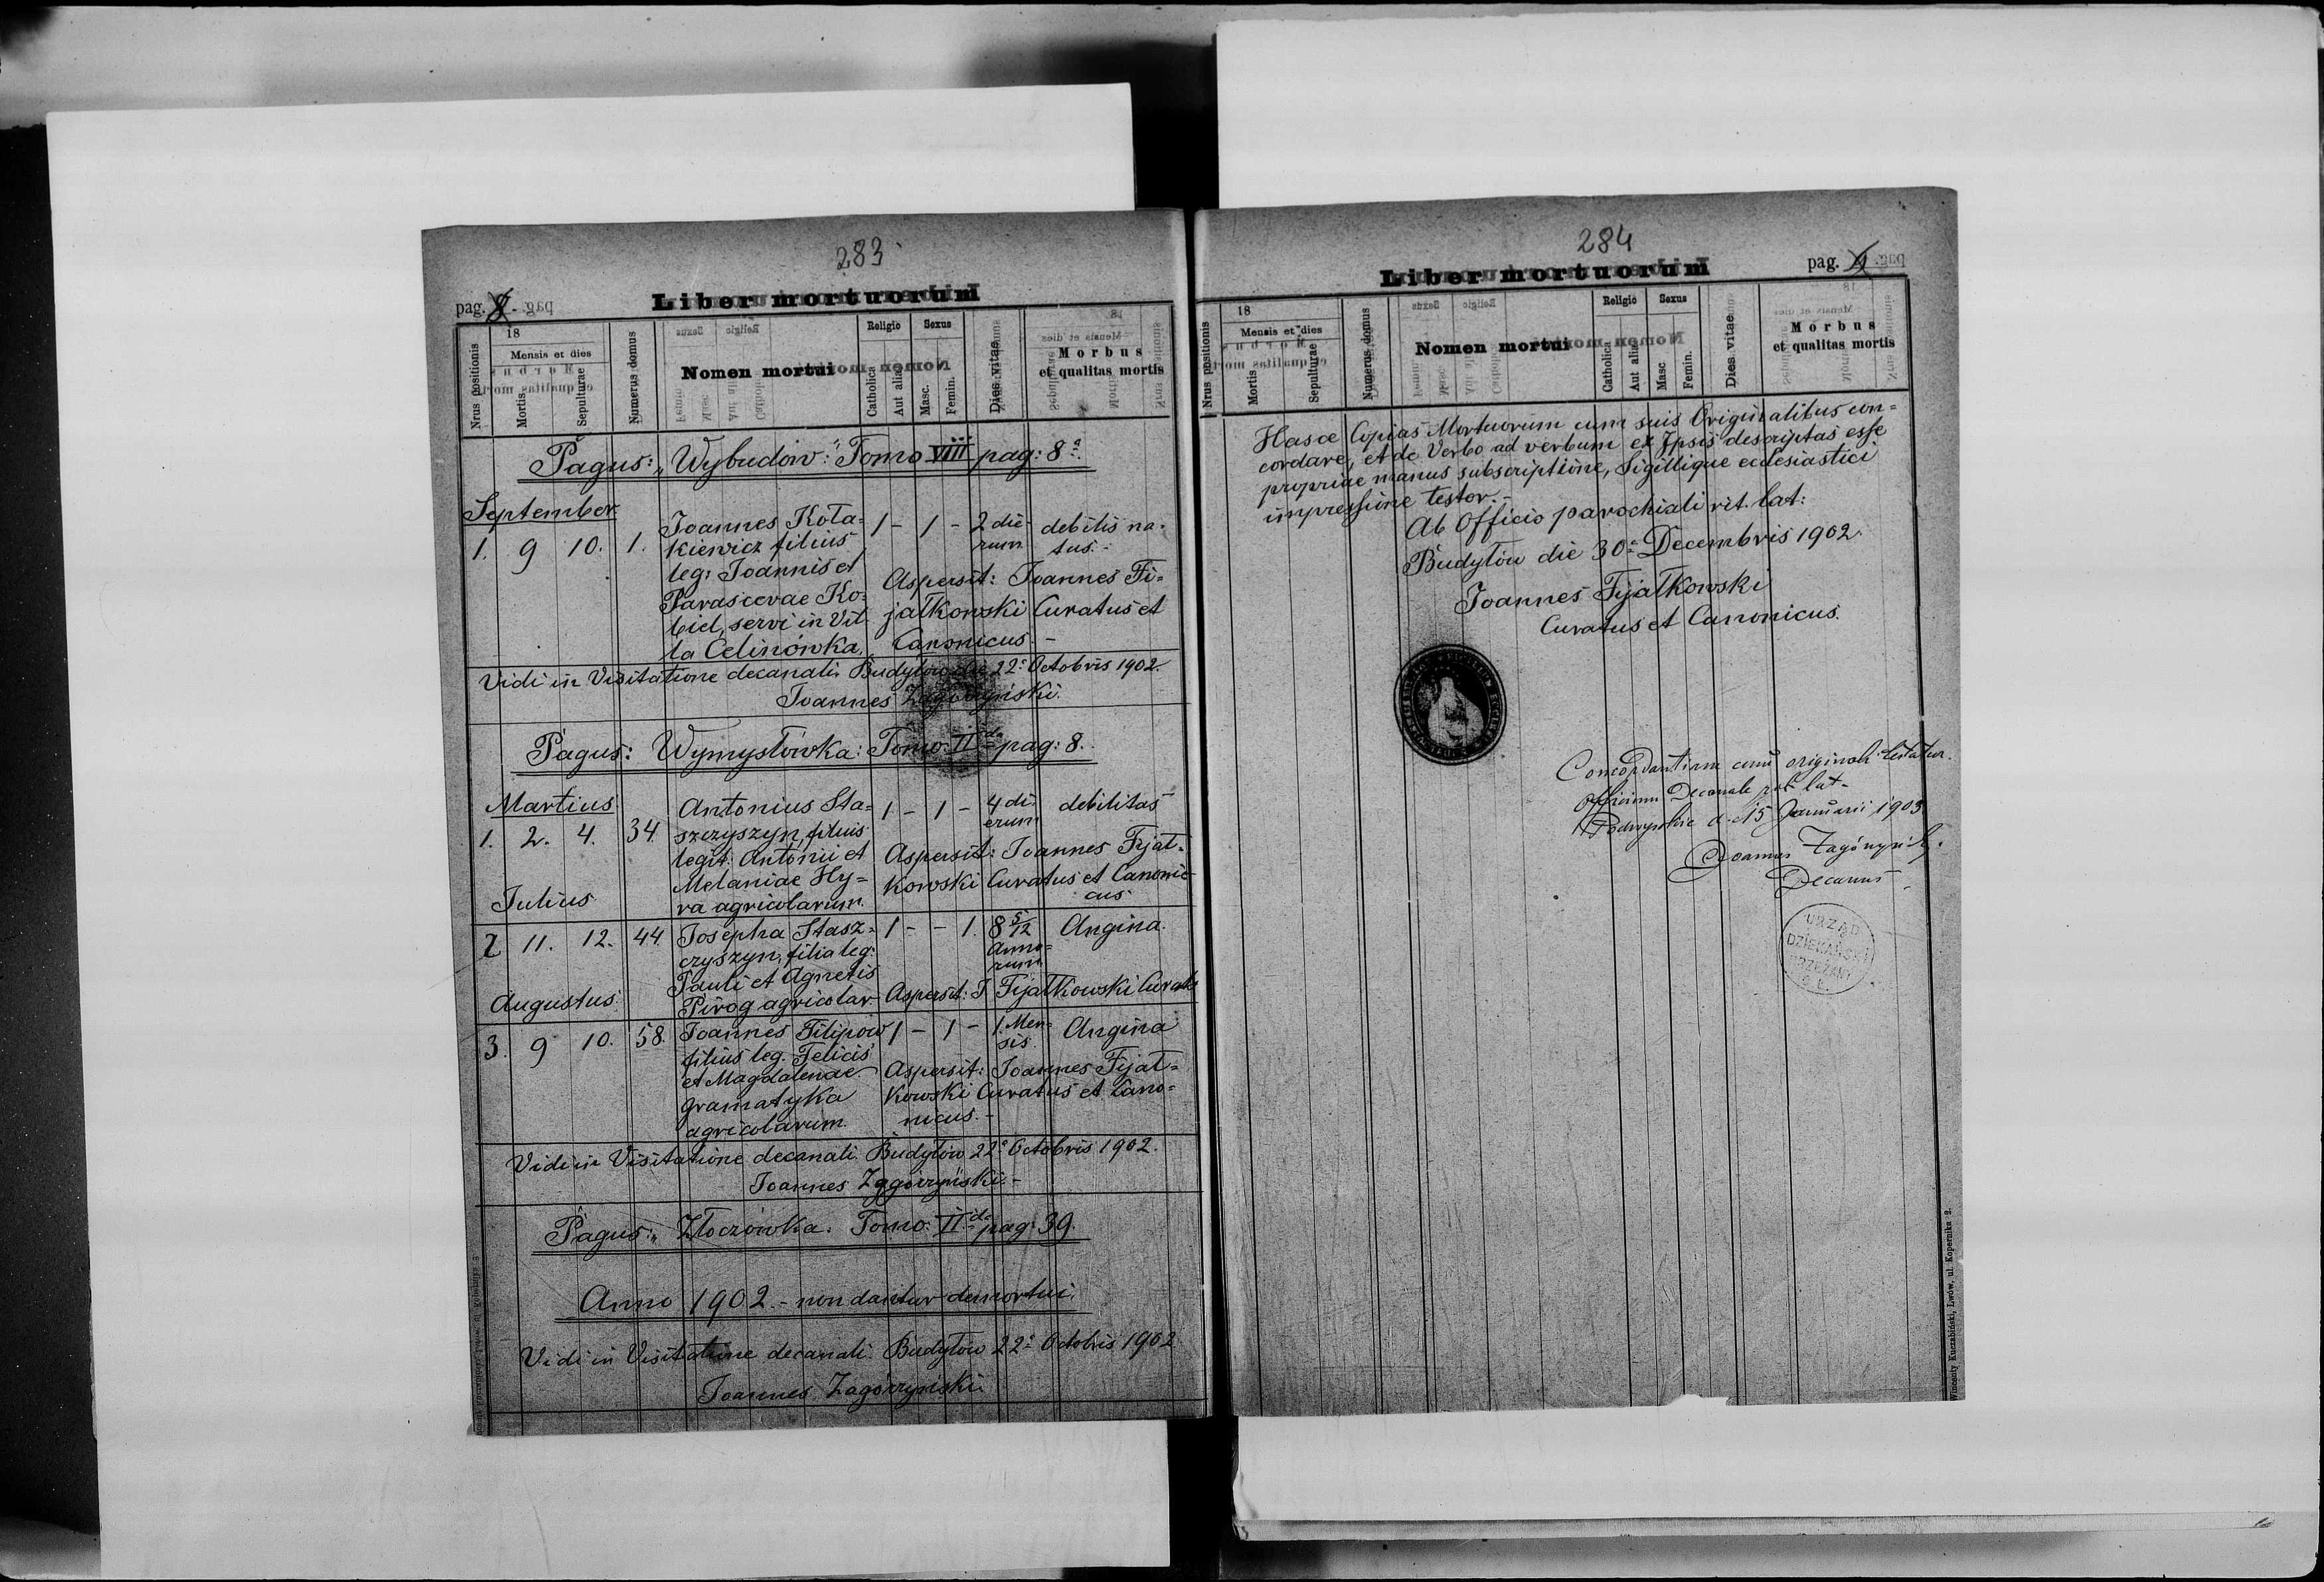 283
pag. 8.
Liber mortuorum
Nrus positionis
18
Mensis et dies
Mortis
Sepulturae
Numerus domus
Nomen mortui
Religio
Catholica
Aut alia
Sexus
Masc.
Femin.
Dies vitae
Morbus
et qualitas mortis
Pagus: „Wybudów:" Tomo VIII pag: 8ª.
September
1. 9 10. 1. Joannes Kola= 1 - 1 - 2 die- debilis na-
kiewicz filius rum tus.-
leg: Joannis et
Parascevae Ko=
biel, servi in Vil
la Celinówka.
Aspersit: Joannes Fi=
jałkowski Curatus et
Canonicus.-
Vidi in Visitatione decanali Budyłów die 22ª Octobris 1902.
Joannes Zagórzyński.
Pagus: Wymysłówka: Tomo: IIdo pag: 8.
Martius
1. 2. 4. 34. Antonius Sta= 1 - 1 - 4 di- debilitas
szczyszyn, filius erum
legit: Antonii et
Melaniae Hy=
ra agricolarum.
Aspersit: Joannes Fijał=
kowski Curatus et Canoni-
cus
Julius
2 11. 12. 44. Josepha Stasz= 1 - - 1. 8 5/12 Angina.
czyszyn, filia leg: Anno=
Pauli et Agnetis rum
Pirog agricolar.
Aspersit: J Fijałkowski Curat
Augustus.
3. 9 10. 58. Joannes Filipow 1 - 1 - 1. Men- Angina
filius leg. Felicis sis.
et Magdalenae
Gramatyka
agricolarum.
Aspersit: Joannes Fijał=
kowski Curatus et Cano=
nicus.-
Vidi in Visitatione decanali Budyłów 22ª Octobris 1902.
Joannes Zagórzyński.-
Pagus: „Złoczówka. Tomo: IIdo pag: 39.
Anno 1902.- non dantur demortui.
Vidi in Visitatione decanali. Budyłów 22ª Octobris 1902
Joannes Zagórzyński
284
Liber mortuorum
pag.
Nrus positionis
18
Mensis et dies
Mortis
Sepulturae
Numerus domus
Nomen mortui
Religio
Catholica
Aut alia
Sexus
Masc
Femin.
Dies vitae
Morbus
et qualitas mortis
Hasce Copias Mortuorum cum suis Originalibus con=
cordare, et de Verbo ad verbum ex Ipsis descriptas esse
propriae manus subscriptione, Sigillique ecclesiastici
impressione testor.-
Ab Officio parochiali rit. lat:
Budyłów die 30ª Decembris 1902.
Joannes Fijałkowski
Curatus et Canonicus.
Concordantiam cum originali testatur.
Officium Decanale rit lat-
d. 15 Januarii 1903
Joannes Zagórzyński
Decanus
URZĄD
DZIEKAŃSKI
BRZEŻANY
Wincenty Kuczabiński, Lwów, ul. Kopernika 2.